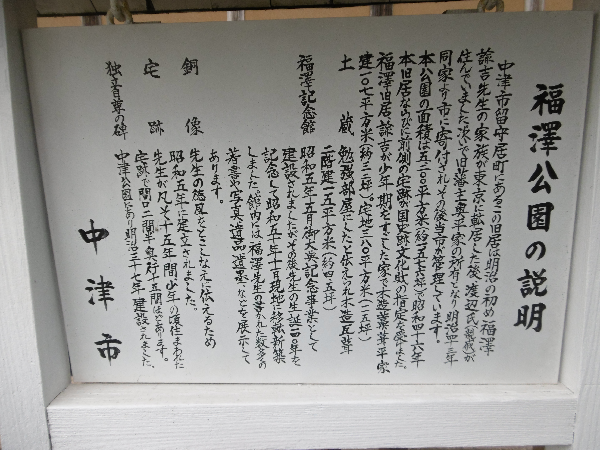 福澤公園の説明
中津市留守居町にあるこの旧居は明治の初め福澤
諭吉先生の家族が東京に転居した後、渡辺氏(親戚)が
住んでいました次いで旧藩主奥平家の所有となり明治四十三年
同家より市に寄付されその後当市が管理しています。
本公園の面積は五二〇〇平方米(約一五七五坪)で昭和四十六年
本旧居ならびに前側の宅跡が国史跡文化財の指定を受けました。
福澤旧居 諭吉が少年期をすごした家で木造藁葺平家
建一〇七平方米(約三二坪)。宅地三八〇平方米(一一五坪)
土蔵 勉強部屋にしたと伝えられ木造瓦葺
二階建一五平方米(約四、五坪)
福澤記念館 昭和五年十月御大典記念事業として
建設されましたがその後先生の生誕一四〇年を
記念して昭和五十年十月現地に移転新築
しました。館内には福澤先生の書かれた数多の
著書や写真、遺品、遺墨、などを展示して
あります。
銅像 先生の徳風をとこしなえに伝えるため
昭和五年に建立されました。
宅跡 先生が凡そ十五年間少年の頃住まわれた
宅跡で間口二間半奥行十五間ほどあります。
独立自尊の碑 中津公園にあり明治三十七年建設されました。
中津市